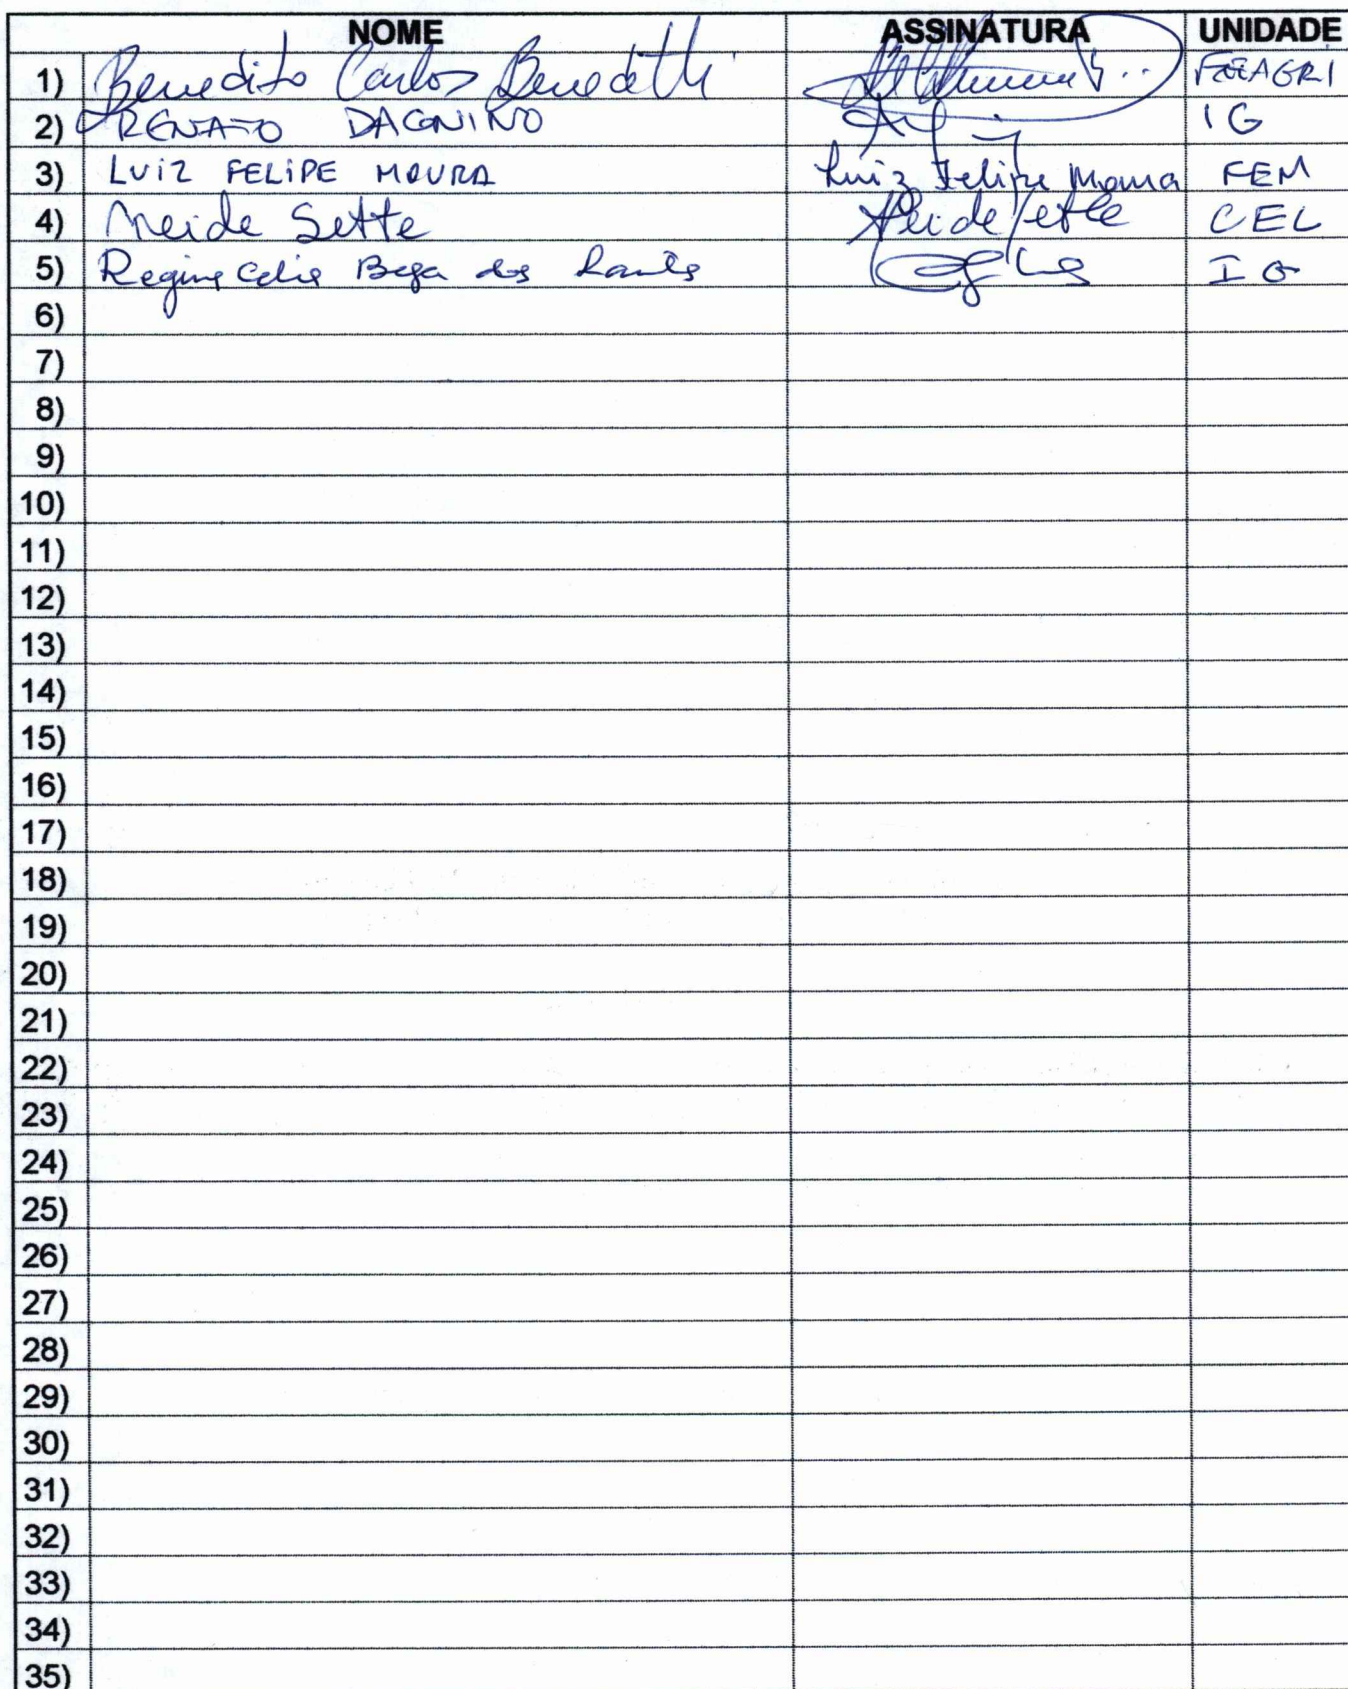 NOME ASSINATURA UNIDADE
1) Benedito Carlos Benedetti FEAGRI
2) RENATO DAGNINO IG
3) LUIZ FELIPE MOURA Luiz Felipe Moura FEM
4) Neide Sette Neide Sette CEL
5) Regina Celia Bega dos Santos IG
6)
7)
8)
9)
10)
11)
12)
13)
14)
15)
16)
17)
18)
19)
20)
21)
22)
23)
24)
25)
26)
27)
28)
29)
30)
31)
32)
33)
34)
35)